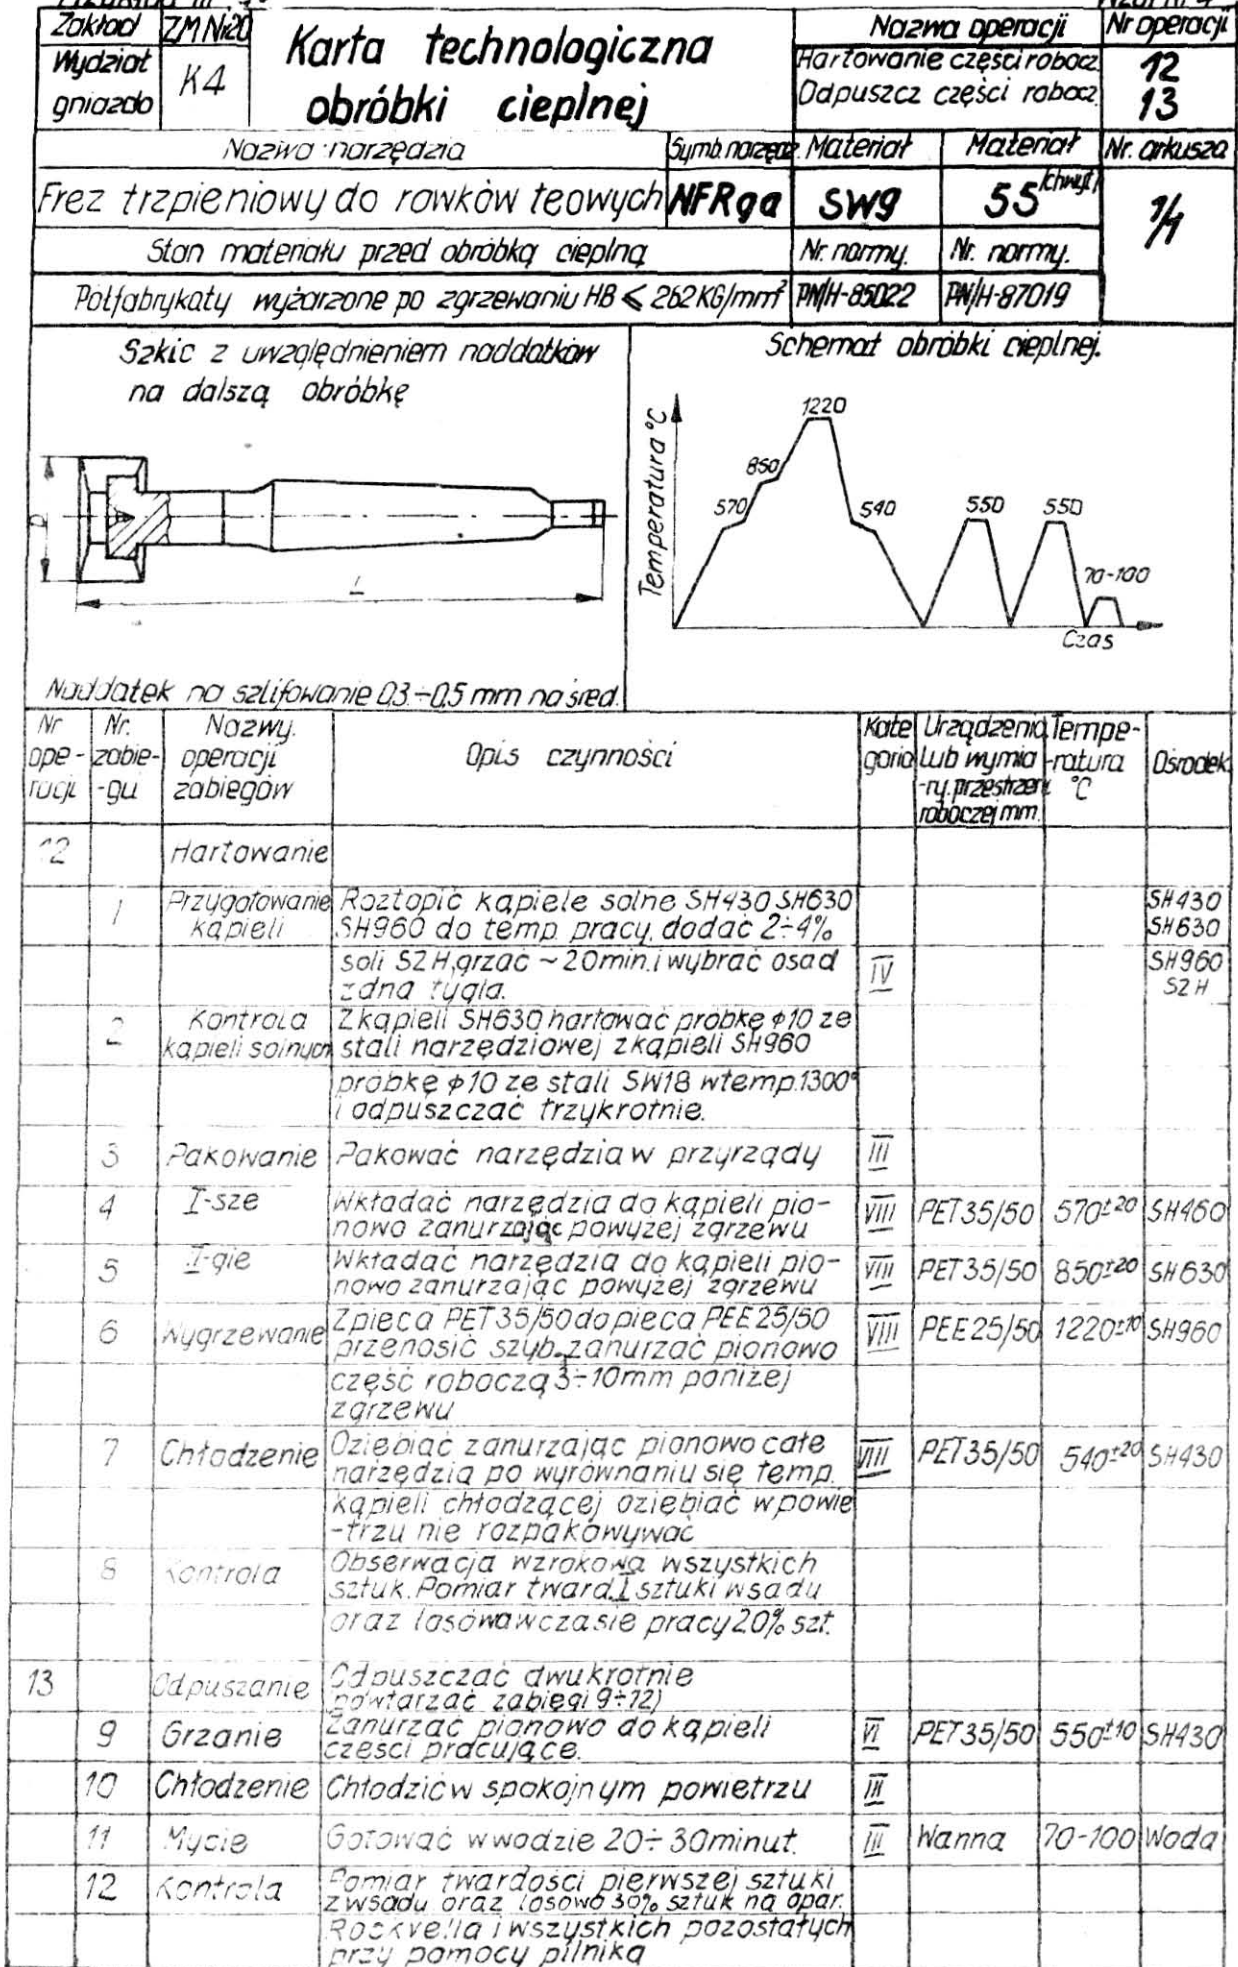 Zakład ZM Nr20
Wydział
gniazdo
K4
Karta technologiczna
obróbki cieplnej
Nazwa operacji
Nr operacji
Hartowanie części robocz.
12
Odpuszcz części robocz.
13
Nazwa narzędzia
Symb. narzędz.
Materiał
Materiał
Nr. arkusza
Frez trzpieniowy do rowków teowych
NFRga
SW9
55 /chwyt/
1/1
Stan materiału przed obróbką cieplną
Nr. normy.
Nr. normy.
Półfabrykaty wyżarzone po zgrzewaniu HB ⩽ 262 KG/mm²
PN/H-85022
PN/H-87019
Szkic z uwzględnieniem naddatków
na dalszą obróbkę
D
L
Naddatek na szlifowanie 0,3÷0,5 mm na śred.
Schemat obróbki cieplnej.
Temperatura °C
570
850
1220
540
550
550
70-100
Czas
Nr
ope-
racji
Nr.
zabie-
-gu
Nazwy.
operacji
zabiegów
Opis czynności
Kate
goria
Urządzenia
lub wymia
-ry. przestrzeni
roboczej mm.
Tempe-
-ratura
°C
Ośrodek
12 Hartowanie
1 Przygotowanie Roztopić kąpiele solne SH430 SH630 SH430
kąpieli SH960 do temp. pracy, dodać 2÷4% SH630
soli S2H, grzać ~20min. i wybrać osad IV SH960
z dna tygla. S2H
2 Kontrola Z kąpieli SH630 hartować próbkę ϕ10 ze
kąpieli solnych stali narzędziowej z kąpieli SH960
próbkę ϕ10 ze stali SW18 w temp. 1300°
i odpuszczać trzykrotnie.
3 Pakowanie Pakować narzędzia w przyrządy III
4 I-sze Wkładać narzędzia do kąpieli pio- VIII PET35/50 570±20 SH460
nowo zanurzając powyżej zgrzewu
5 II-gie Wkładać narzędzia do kąpieli pio- VIII PET35/50 850±20 SH630
nowo zanurzając powyżej zgrzewu
6 Wygrzewanie Z pieca PET35/50 do pieca PEE25/50 VIII PEE25/50 1220±10 SH960
przenosić szyb. zanurzać pionowo
część roboczą 3÷10mm poniżej
zgrzewu
7 Chłodzenie Oziębiać zanurzając pionowo całe VIII PET35/50 540±20 SH430
narzędzia po wyrównaniu się temp.
kąpieli chłodzącej oziębiać w powie
-trzu nie rozpakowywać
8 Kontrola Obserwacja wzrokowa wszystkich
sztuk. Pomiar tward. I sztuki wsadu
oraz losowa w czasie pracy 20% szt.
13 Odpuszanie Odpuszczać dwukrotnie
powtarzać zabiegi 9÷12)
9 Grzanie Zanurzać pionowo do kąpieli VI PET35/50 550±10 SH430
części pracujące.
10 Chłodzenie Chłodzić w spokojnym powietrzu III
11 Mycie Gotować w wodzie 20÷30minut. III Wanna 70-100 Woda
12 Kontrola Pomiar twardości pierwszej sztuki
z wsadu oraz losowo 30% sztuk na apar.
Rockvella i wszystkich pozostałych
przy pomocy pilnika